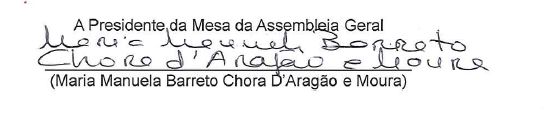 A Presidente da Mesa da Assembleia Geral
Maria Manuela Barreto
Chora d'Aragão e Moura
(Maria Manuela Barreto Chora D'Aragão e Moura)